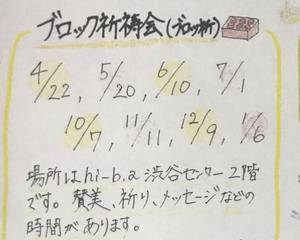 ブロック祈祷会(ブロッ祈)
4/22, 5/20, 6/10, 7/1
10/7, 11/11, 12/9, 1/6
場所はhi-b.a渋谷センター2階
です。賛美、祈り、メッセージなどの
時間があります。